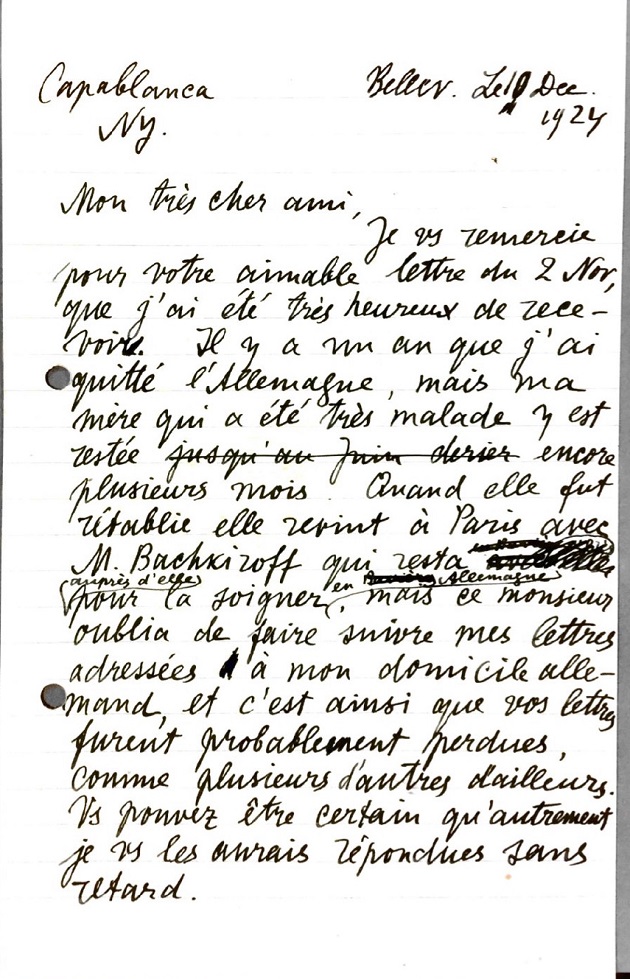 Capablanca
Ny.
Bellev. Le Dec.
1924
Mon très cher ami,
Je vs remercie
pour votre aimable lettre du 2 Nov,
que j'ai été très heureux de rece-
voir. Il y a un an que j'ai
quitté l'Allemagne, mais ma
mère qui a été très malade y est
restée jusqu'au Juin derier encore
plusieurs mois. Quand elle fut
rétablie elle revint à Paris avec
M. Bachkiroff qui resta
auprès d'elle en Allemagne
pour la soigner, mais ce monsieur
oublia de faire suivre mes lettres
adressées à mon domicile alle-
mand, et c'est ainsi que vos lettres
furent probablement perdues,
comme plusieurs d'autres d'ailleurs.
Vs pouvez être certain qu'autrement
je vs les aurais répondues sans
retard.